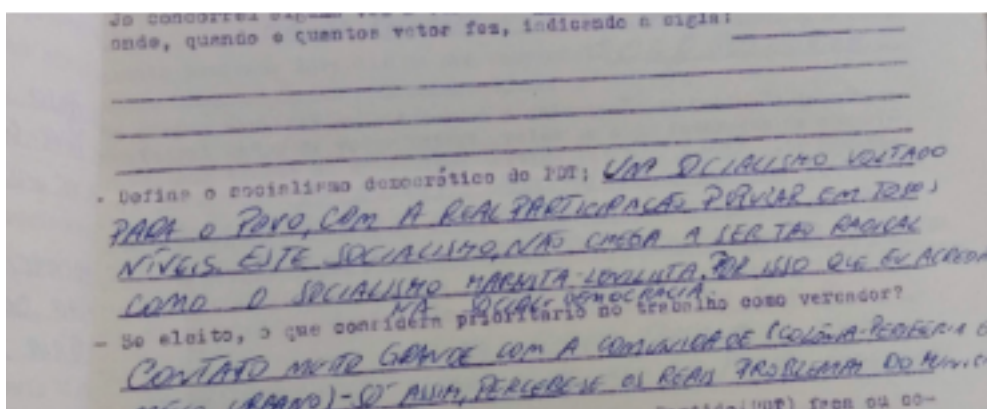 Já concorreu alguma vez a
onde, quando e quantos votos fez, indicando a sigla:
- Defina o socialismo democrático do PDT: UM SOCIALISMO VOLTADO
PARA O POVO, COM A REAL PARTICIPAÇÃO POPULAR EM TODOS
NÍVEIS. ESTE SOCIALISMO, NÃO CHEGA A SER TÃO RADICAL
COMO O SOCIALISMO MARXISTA-LENINISTA, POR ISSO QUE EU ACREDITO
NA SOCIAL-DEMOCRACIA.
- Se eleito, o que considera prioritário no trabalho como vereador?
CONTATO MUITO GRANDE COM A COMUNIDADE (COLÔNIA-PERIFERIA E
MEIO URBANO) - SÓ ASSIM, PERCEBE-SE OS REAIS PROBLEMAS DO MUNICÍ
(PDT) fez ou co-